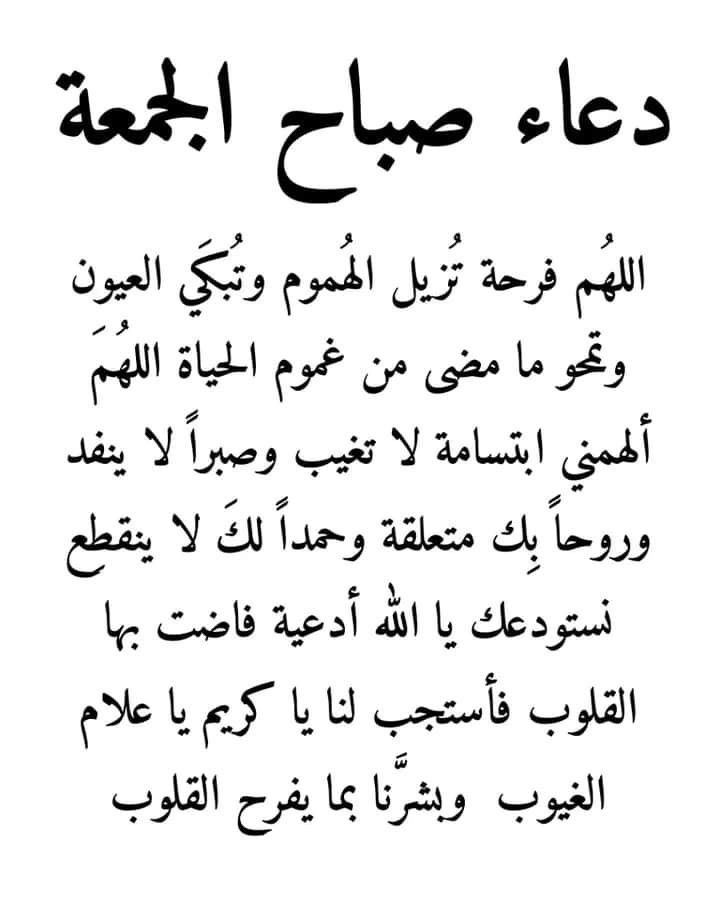 دعاء صباح الجمعة
اللهُم فرحة تُزيل الهُموم وتُبكَي العيون
وتمحو ما مضى من غموم الحياة اللهُمَ
ألهمني ابتسامة لا تغيب وصبراً لا ينفد
وروحاً بِك متعلقة وحمداً لكَ لا ينقطع
نستودعك يا الله أدعية فاضت بها
القلوب فأستجب لنا يا كريم يا علام
الغيوب وبشرَّنا بما يفرح القلوب